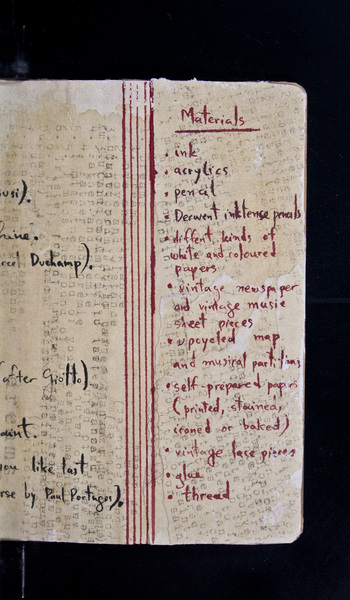 usi).
hine.
Duchamp).
(after Giotto)
you like last
by Paul Portuges).
Materials
• ink
• acrylics
• pencil
• Derwent inktense pencils
• diffent kinds of
white and coloured
papers
• vintage newspaper
and vintage music
sheet pieces
• upcycled map
and musical partitions
• self-prepared papers
(printed, stained,
ironed or baked)
• vintage lace pieces
• glue
• thread